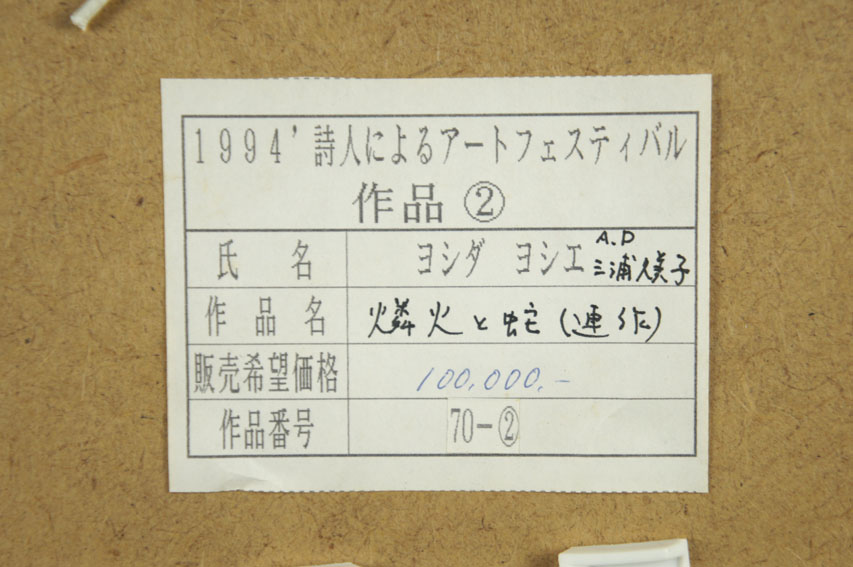 1994'詩人によるアートフェスティバル
作品②
氏名 ヨシダ ヨシエ A.D 三浦久美子
作品名 燐火と蛇(連作)
販売希望価格 100,000.-
作品番号 70-②